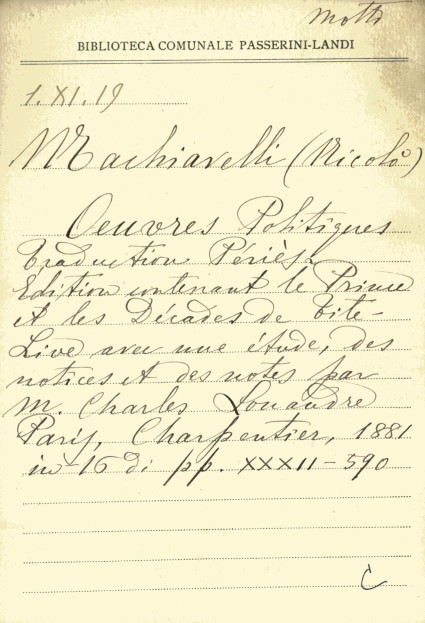 Motti
BIBLIOTECA COMUNALE PASSERINI-LANDI
1.XI.19
Machiavelli (Nicolò)
Oeuvres Politiques
traduction Périès
Edition contenant le Prince
et les Décades de Tite-
Live avec une étude, des
notices et des notes par
M. Charles Louandre
Paris, Charpentier, 1881
in-16 di pp. XXXII-590
C